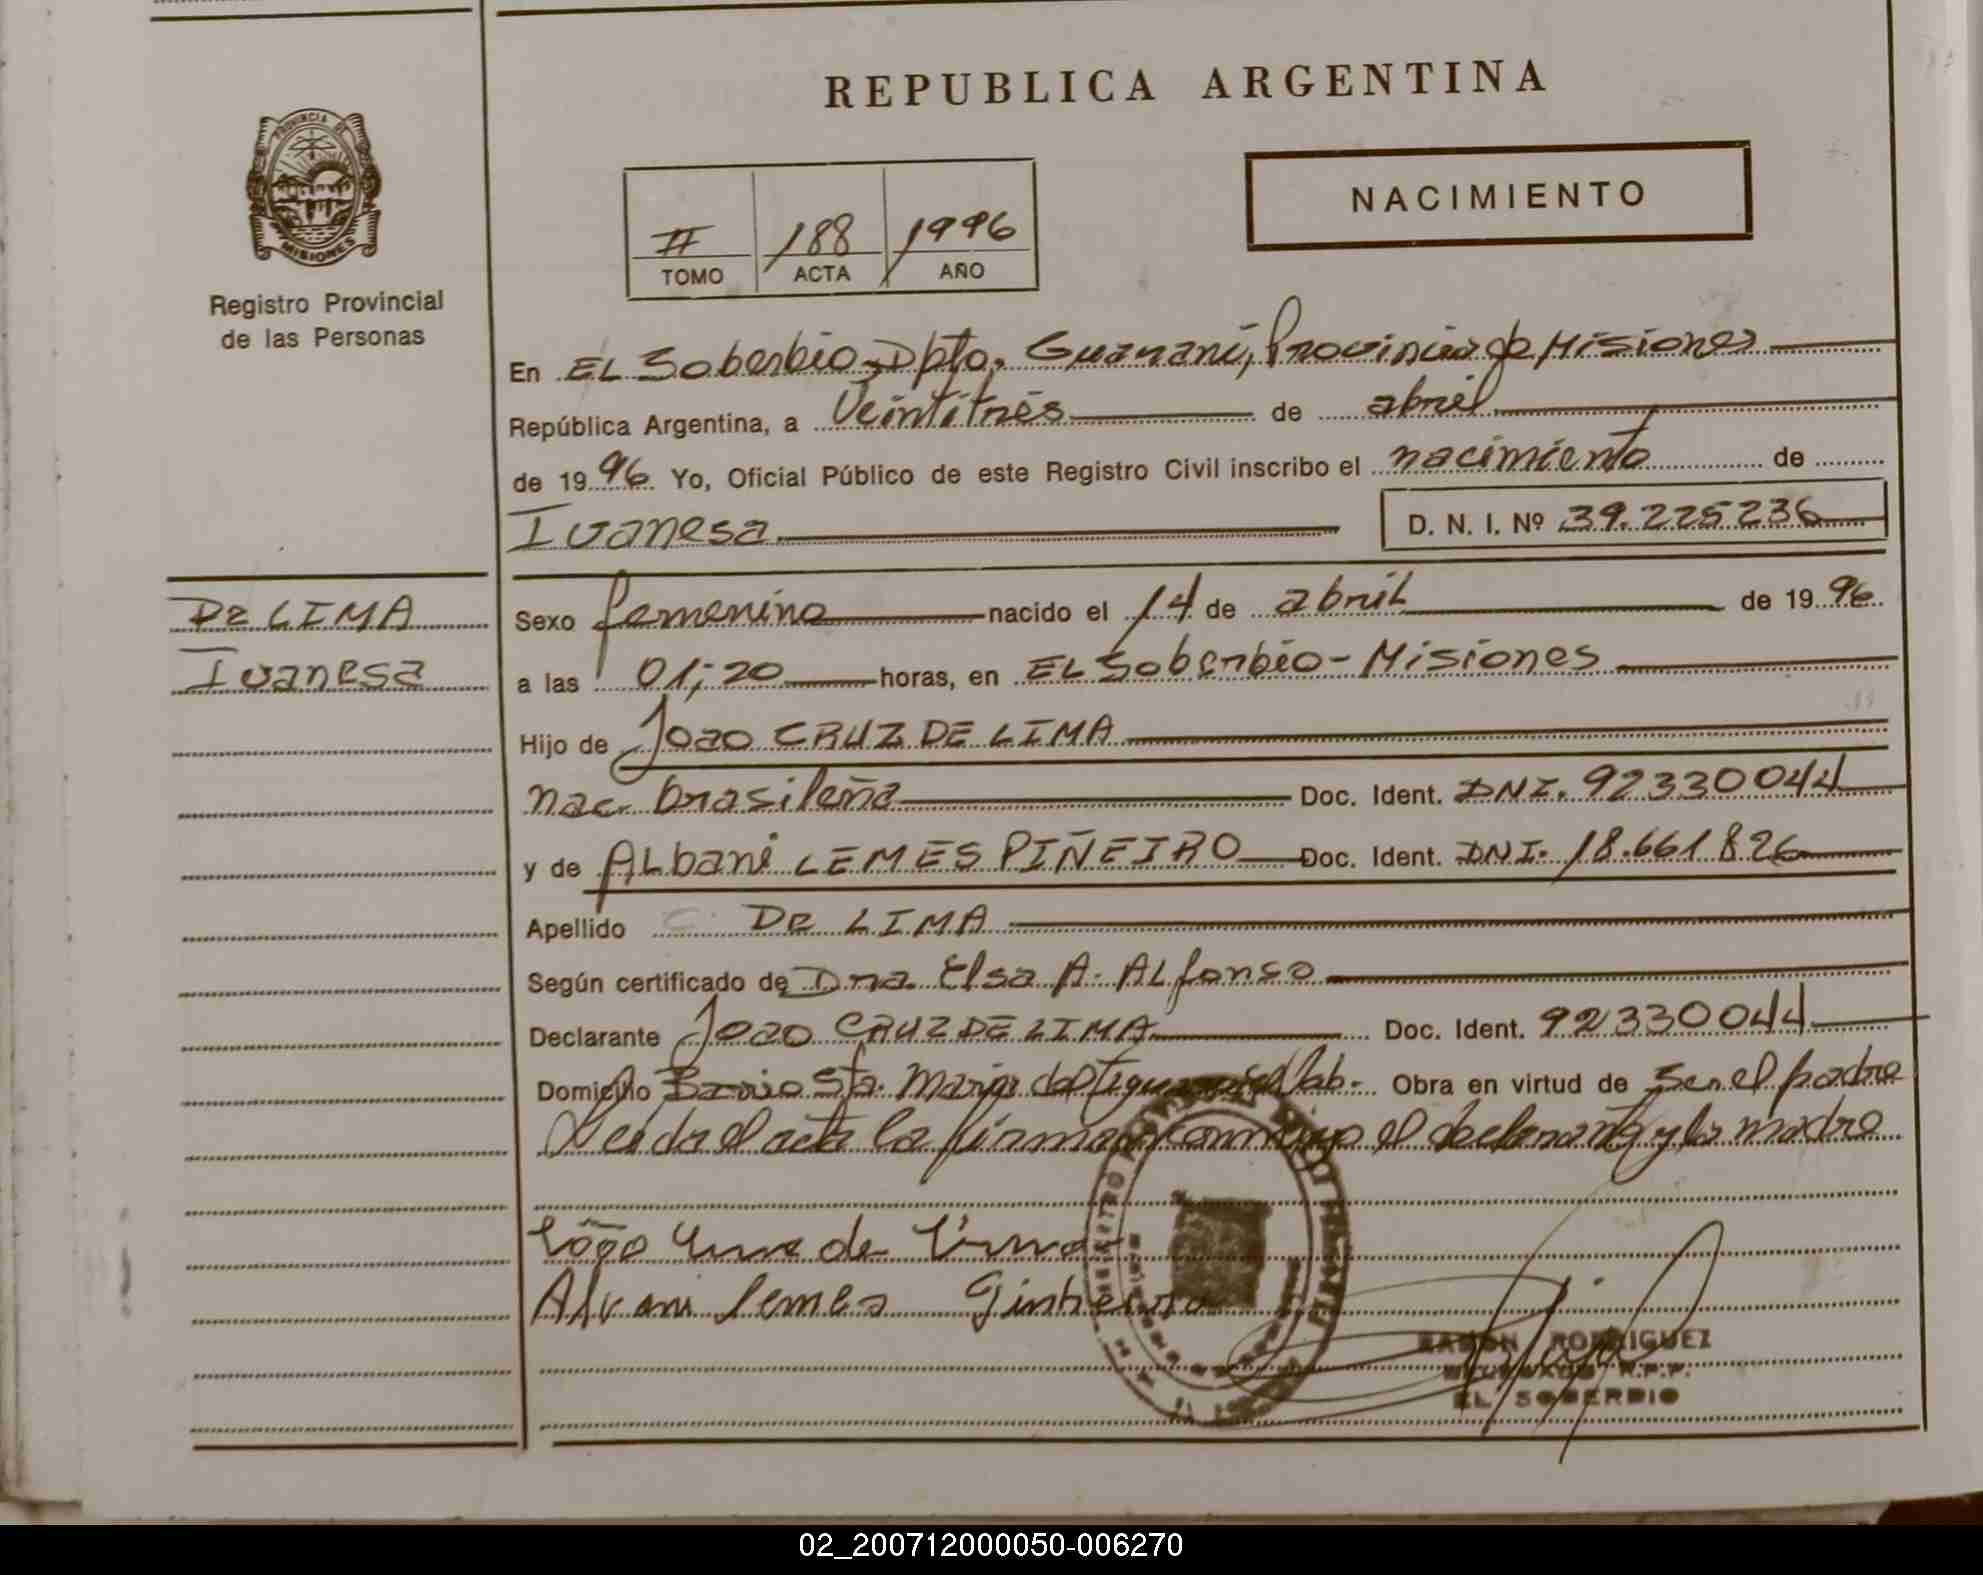 REPUBLICA ARGENTINA
PROVINCIA DE
MISIONES
Registro Provincial
de las Personas
NACIMIENTO
II 188 1996
TOMO ACTA AÑO
En EL Soberbio, Dpto. Guaraní, Provincia de Misiones
República Argentina, a Veintitrés de abril
de 1996 Yo, Oficial Público de este Registro Civil inscribo el nacimiento de
Ivanesa D. N. I. Nº 39.225236
De LIMA
Ivanesa
Sexo femenino nacido el 14 de abril de 1996
a las 01;20 horas, en EL Soberbio - Misiones
Hijo de Joao CRUZ DE LIMA
nac. brasileña Doc. Ident. DNI. 92330044
y de ALbani LEMES PIÑEIRO Doc. Ident. DNI. 18.661.826
Apellido De LIMA
Según certificado de Dra. Elsa A. ALfonso
Declarante Joao CRUZ DE LIMA Doc. Ident. 92330044
Domicilio Barrio Sta. Maria del Obra en virtud de Ser el padre
Leida el acta la firman conmigo el declarante y la madre
de Lima
Alvani lemes
RAMON RODRIGUEZ
R.P.P.
EL SOBERBIO
02_200712000050-006270